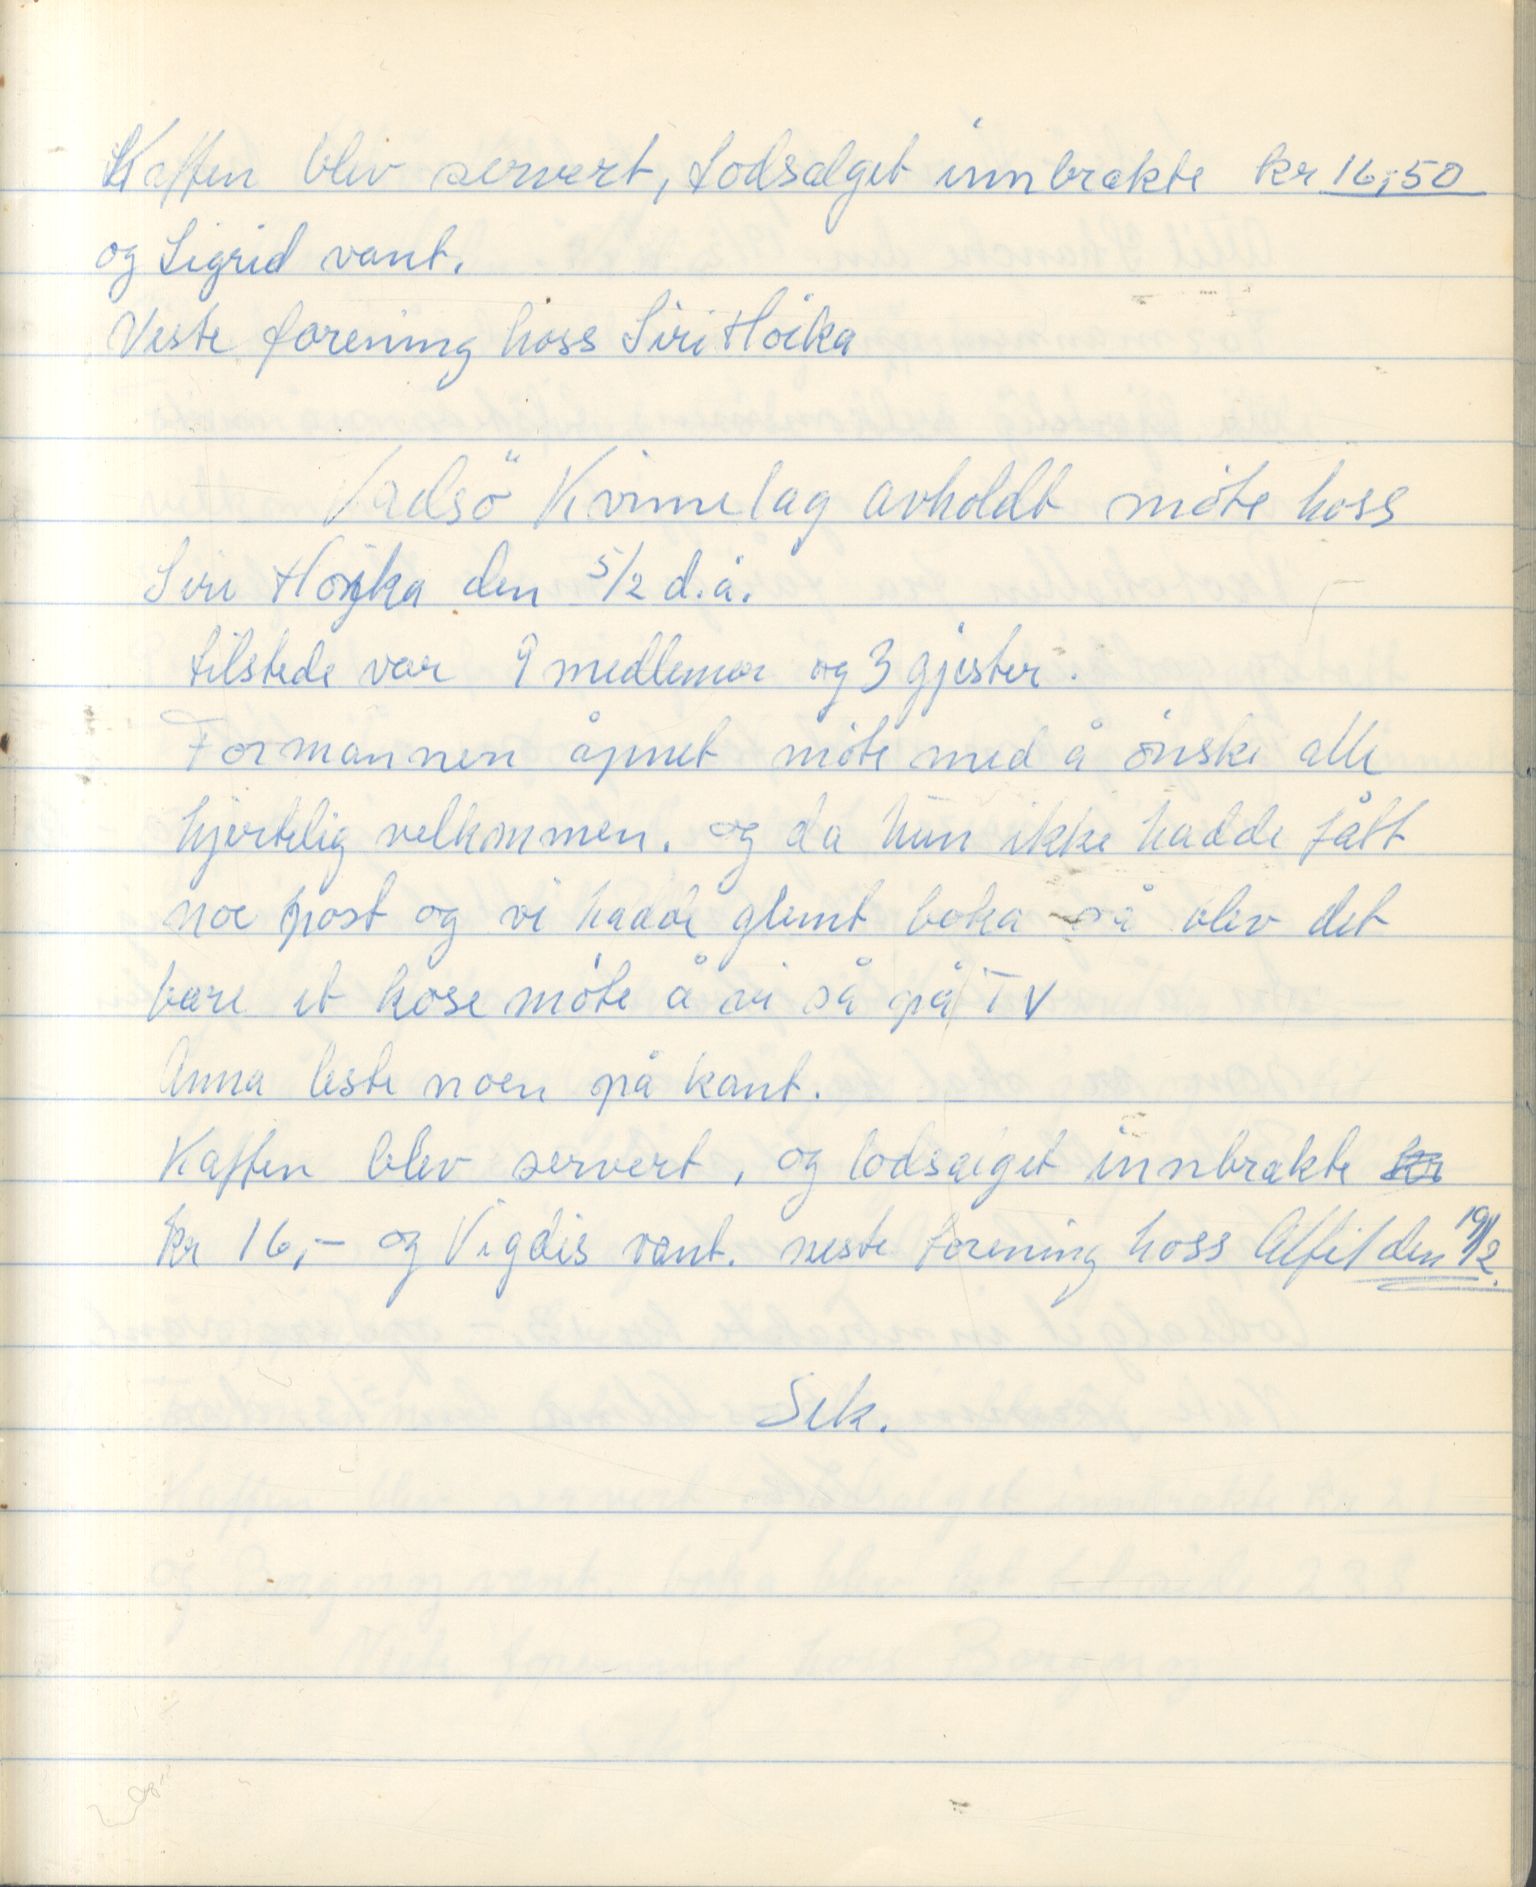 Kaffen blev servert, Lodsalget innbrakte kr 16,50
og Sigrid vant.
Neste forening hoss Siri Hoika

Vadsö Kvinnelag avholdt möte hoss
Siri Hoika den 5/2 d.å.
tilstede var 9 medlemer og 3 gjester.
Formannen åpnet möte med å önske alle
hjertelig velkommen. og da hun ikke hadde fått
noe post og vi hadde glemt boka så blev det
bare et kose möte å vi så på TV
Anna leste noen på kant.
Kaffen blev servert, og lodsalget innbrakte
kr 16,- og Vigdis vant. neste forening hoss Alfil den 19/2.
Sek.